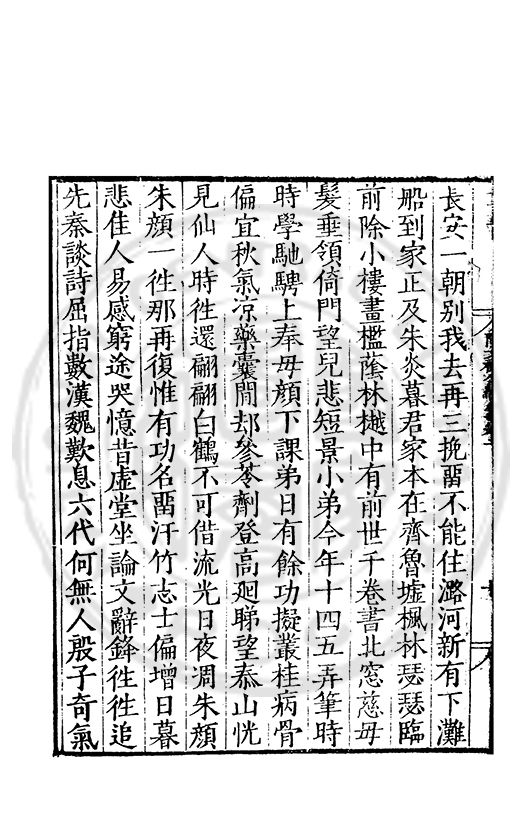 長安一朝別我去再三挽畱不能住潞河新有下灘
船到家正及朱炎暮君家本在齊魯墟楓林瑟瑟臨
前除小樓畫檻蔭林樾中有前世千卷書北窓慈母
髮垂領倚門望兒悲短景小弟今年十四五弄筆時
時學馳騁上奉母顏下課弟日有餘功擬叢桂病骨
偏宜秋氣凉藥囊閒却參苓劑登高廻睇望泰山恍
見仙人時徃還翩翩白鶴不可借流光日夜凋朱顏
朱顏一徃那再復惟有功名畱汗竹志士偏增日暮
悲佳人易感窮途哭憶昔虛堂坐論文辭鋒徃徃追
先秦談詩屈指數漢魏歎息六代何無人殷子奇氣